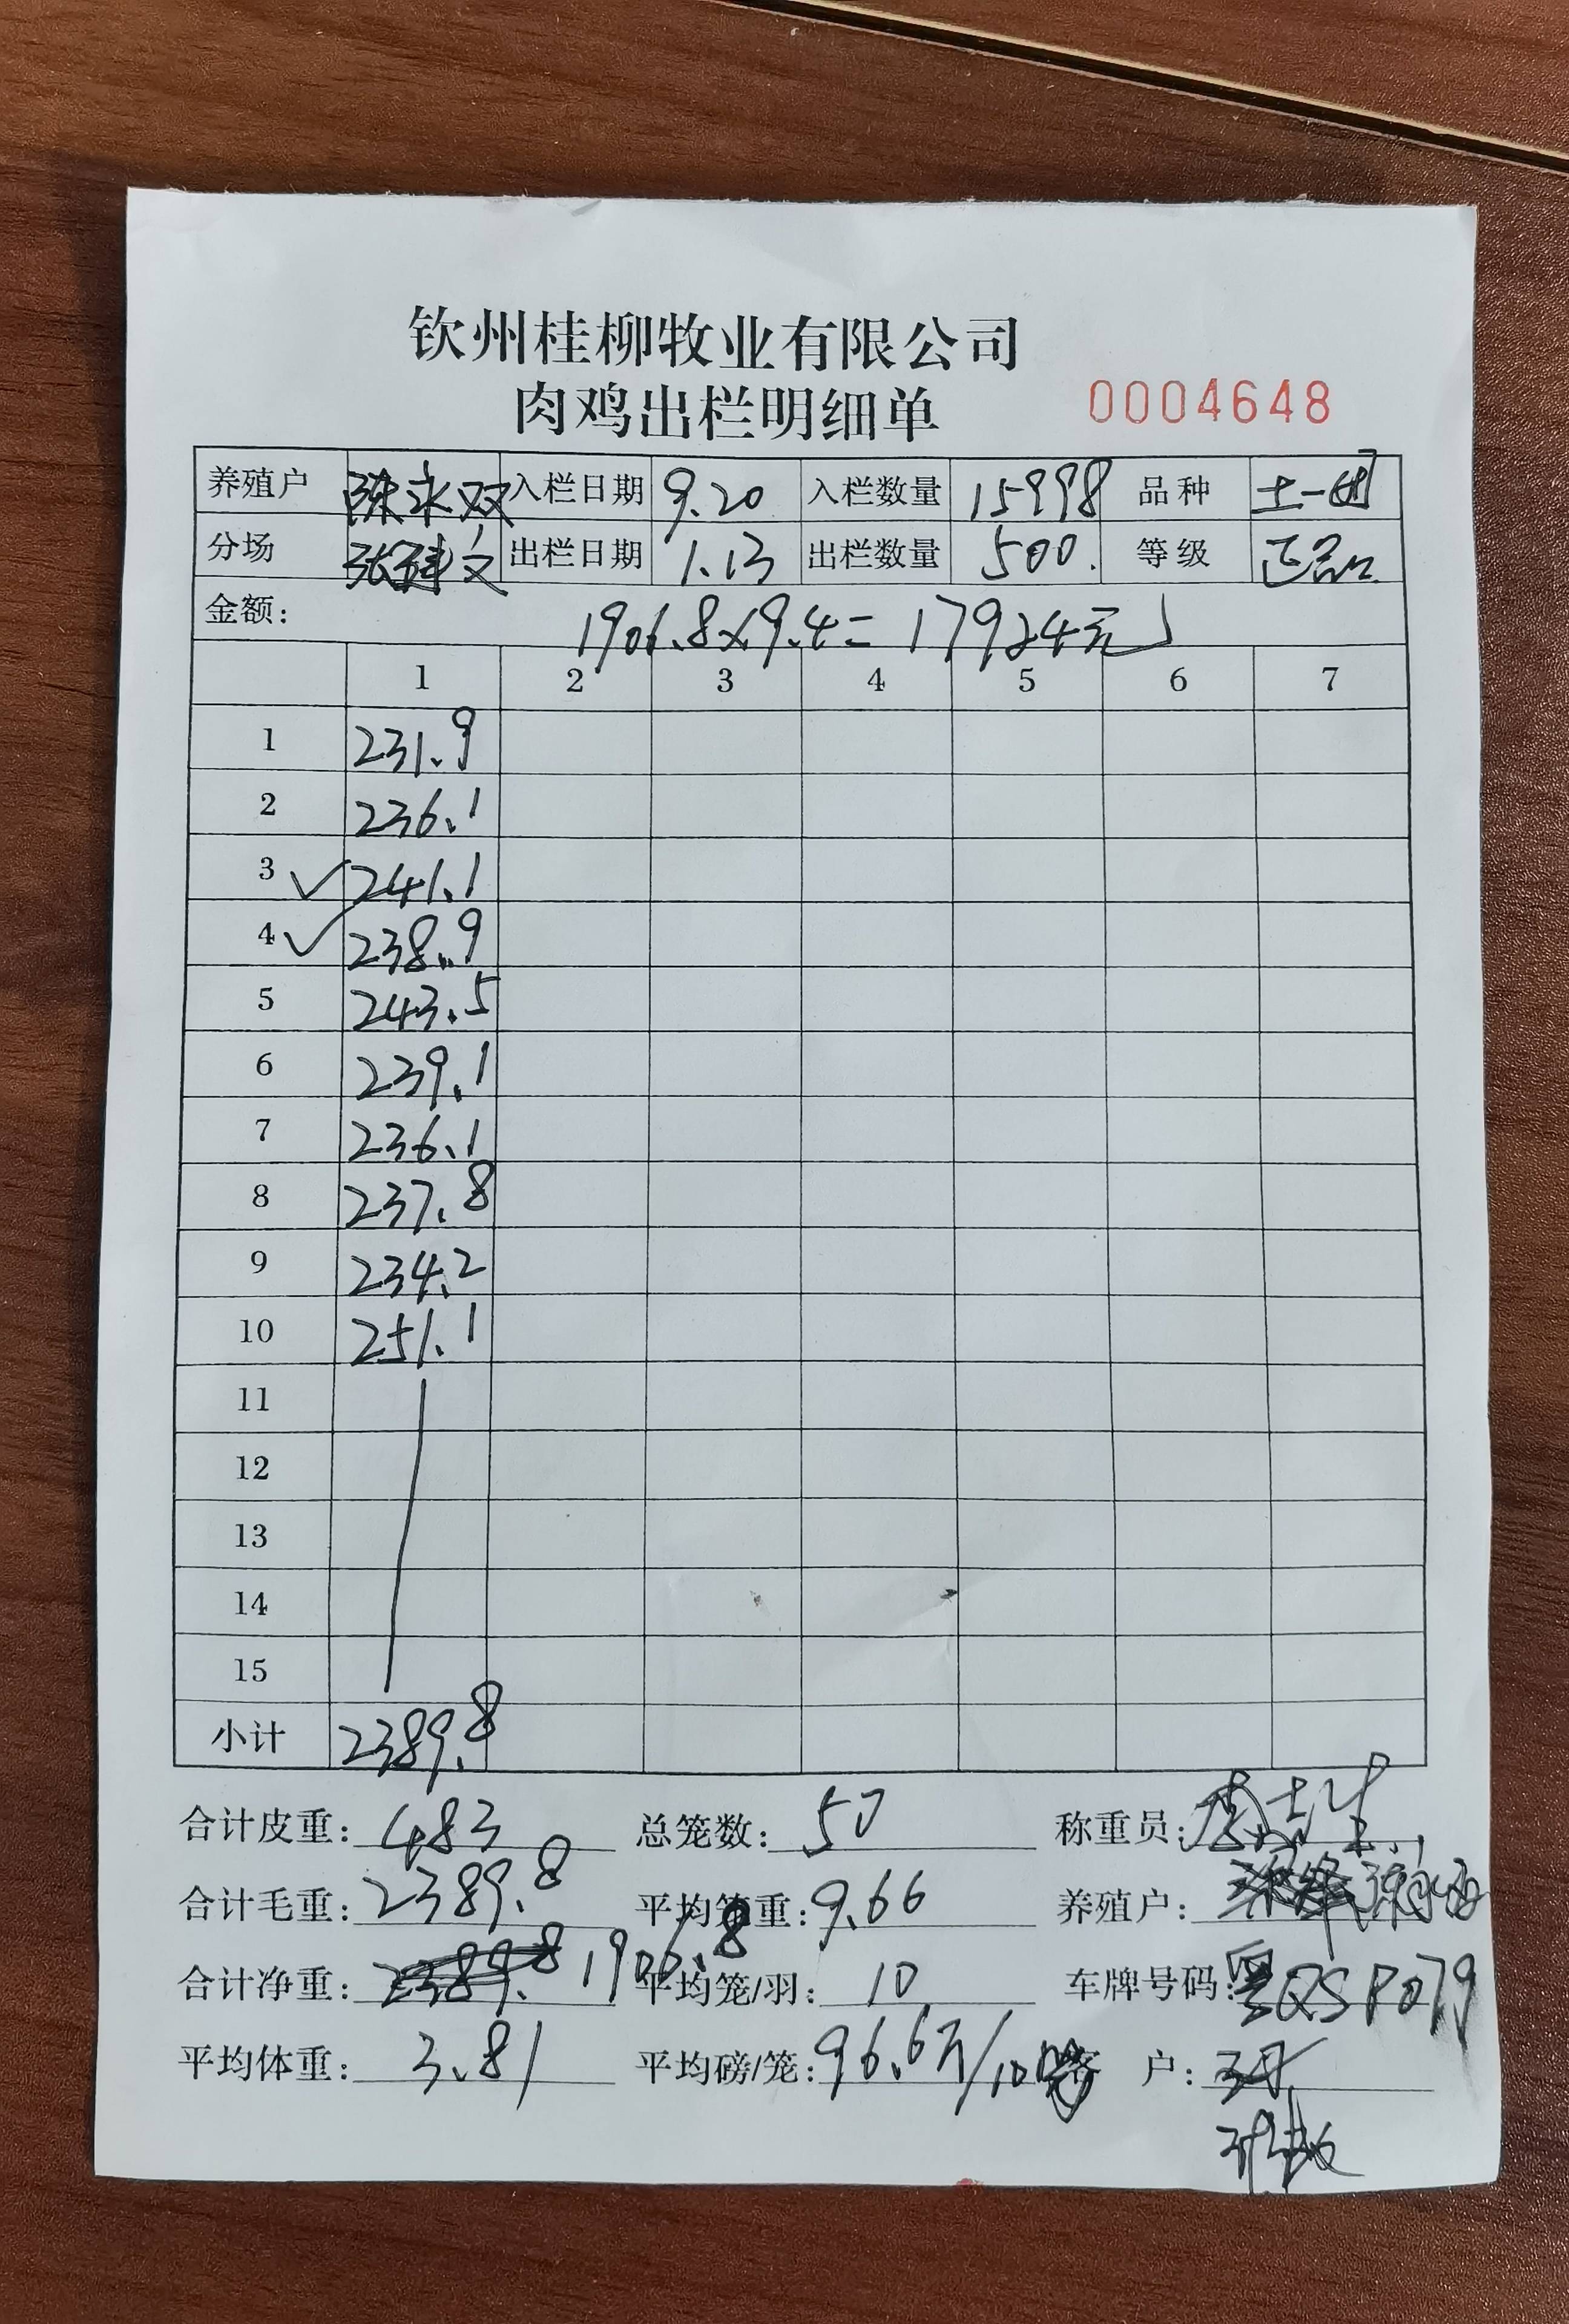 钦州桂柳牧业有限公司
肉鸡出栏明细单 0004648
养殖户 陈永双 入栏日期 9.20 入栏数量 15998 品种 土一
分场 张建文 出栏日期 1.13 出栏数量 500. 等级 正品
金额: 1906.8×9.4=17924元
1 2 3 4 5 6 7
1 231.9
2 236.1
3 ✓ 241.1
4 ✓ 238.9
5 243.5
6 239.1
7 236.1
8 237.8
9 234.2
10 251.1
11
12
13
14
15
小计 2389.8
合计皮重: 483 总笼数: 50 称重员:
合计毛重: 2389.8 平均笼重: 9.66 养殖户:
合计净重: 2389.8 1906.8 平均笼/羽: 10 车牌号码: 粤QSP079
平均体重: 3.81 平均磅/笼: 96.6斤/10 客户: